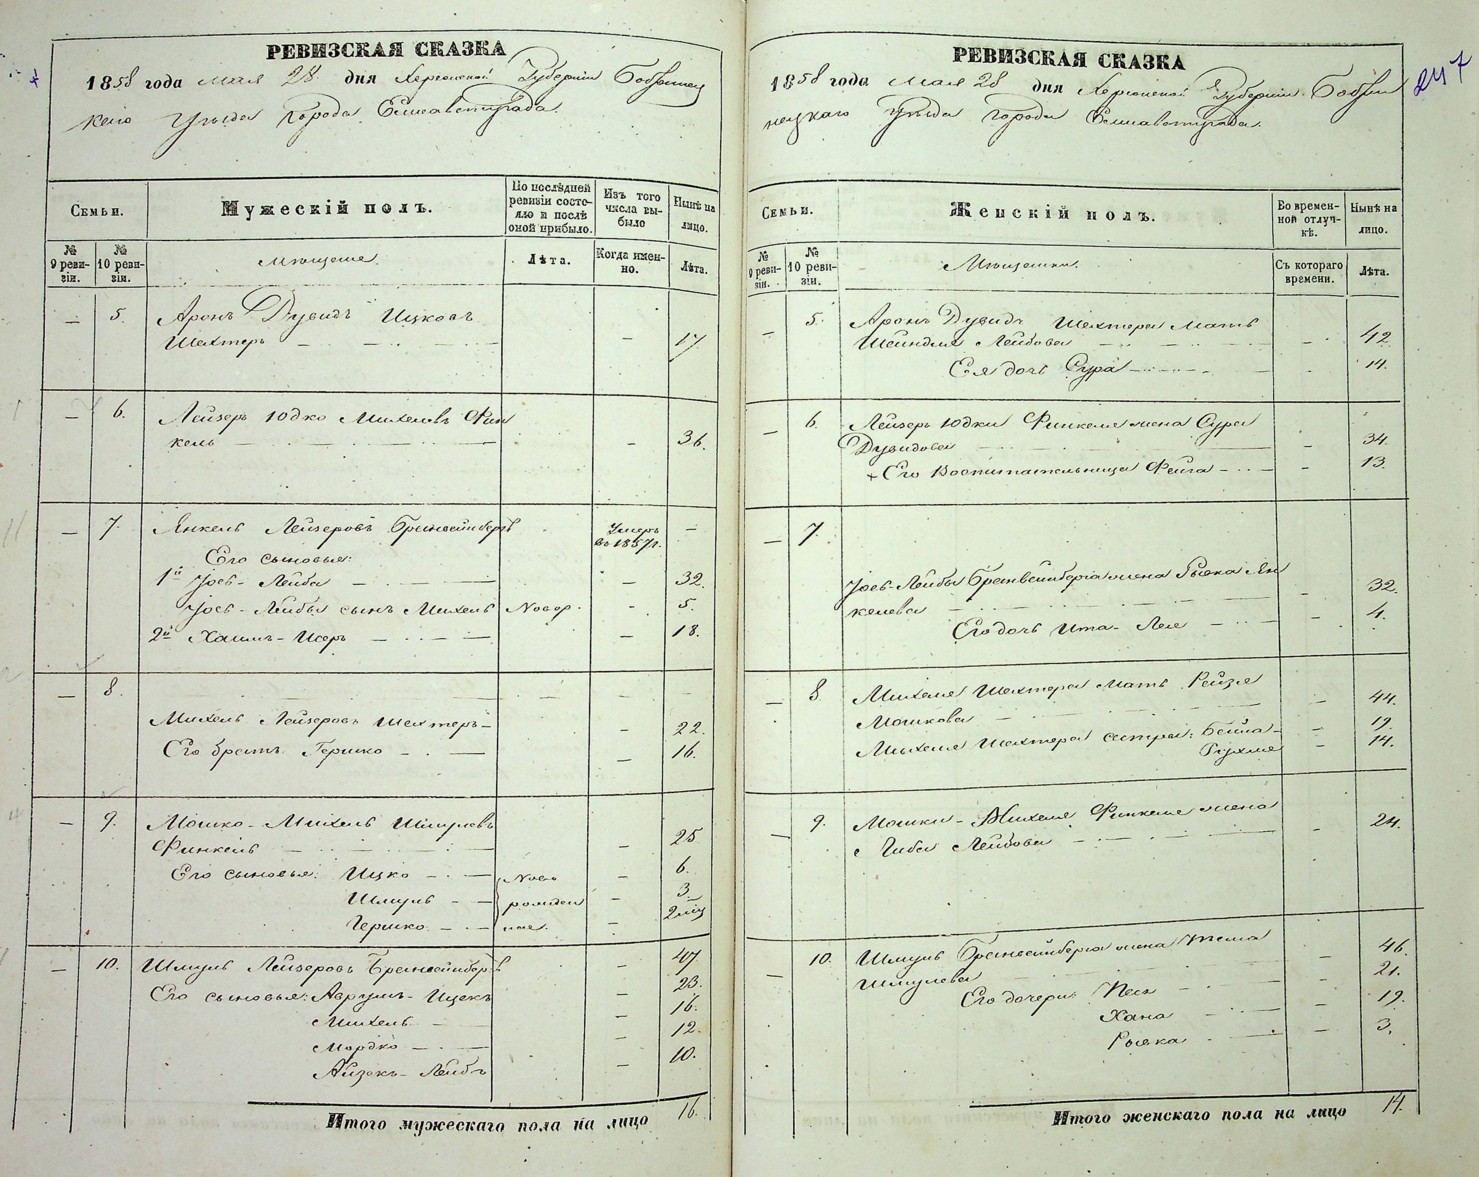 РЕВИЗСКАЯ СКАЗКА
1858 года мая 28 дня Херсонской Губернии Бобринец
каго Уѣзда Города Елисаветграда.
Семьи.
Мужескій полъ.
По послѣдней ревизіи состояло и послѣ оной прибыло.
Изъ того числа выбыло
Нынѣ на лицо.
№ 9 ревизіи.
№ 10 ревизіи.
Мѣщане.
Лѣта.
Когда именно.
Лѣта.
— 5. Аронъ Дувидъ Ицковъ
Шехтеръ — 17
— 6. Лейзеръ Юдко Михелевъ Фин
кель — 36.
— 7. Янкель Лейзеровъ Бренвейнбергъ Умеръ въ 1857 г. —
Его сыновья:
1й Іосъ-Лейба — 32.
Іосъ-Лейбы сынъ Михель Новор. — 5.
2й Хаимъ-Исеръ — 18.
— 8.
Михель Лейзеровъ Шехтеръ — 22.
Его братъ Гершко — 16.
— 9. Мошко-Михель Шмулевъ
Финкель — 25
Его сыновья: Ицко — 6.
Шмуль — 3
Гершко — 2 мѣц
Ново
рожден
ные.
— 10. Шмуль Лейзеровъ Бренвейнбергъ — 47.
Его сыновья: Аврумъ-Ицекъ — 23.
Михель — 16.
Мордко — 12.
Айзекъ-Лейбъ — 10.
Итого мужескаго пола на лицо 16.
247
РЕВИЗСКАЯ СКАЗКА
1858 года мая 28 дня Херсонской Губернии Бобри
нецкаго Уѣзда Города Елисаветграда.
Семьи.
Женскій полъ.
Во временной отлучкѣ.
Нынѣ на лицо.
№ 9 ревизіи.
№ 10 ревизіи.
Мѣщанки.
Съ котораго времени.
Лѣта.
— 5. Аронъ Дувидъ Шехтера мать
Шейндля Лейбова — 42
Ея дочь Сура — 14.
— 6. Лейзеръ Юдки Финкеля жена Сура
Дувидова — 34.
Его Воспитательница Фейга — 13.
— 7.
Іосъ-Лейбы Бренвейнберга жена Рывка Ян
келева — 32.
Его дочь Ита-Лея — 4.
— 8 Михеля Шехтера мать Рейзя
Мошкова — 44.
Михеля Шехтера сестры: Бейла — 19.
Рухля — 14.
— 9. Мошки-Михеля Финкеля жена
Либа Лейбова — 24.
— 10. Шмуля Бренвейнберга жена Тема
Шмулева — 46.
Его дочери: Песя — 21.
Хана — 19.
Рывка — 3.
Итого женскаго пола на лицо 14.